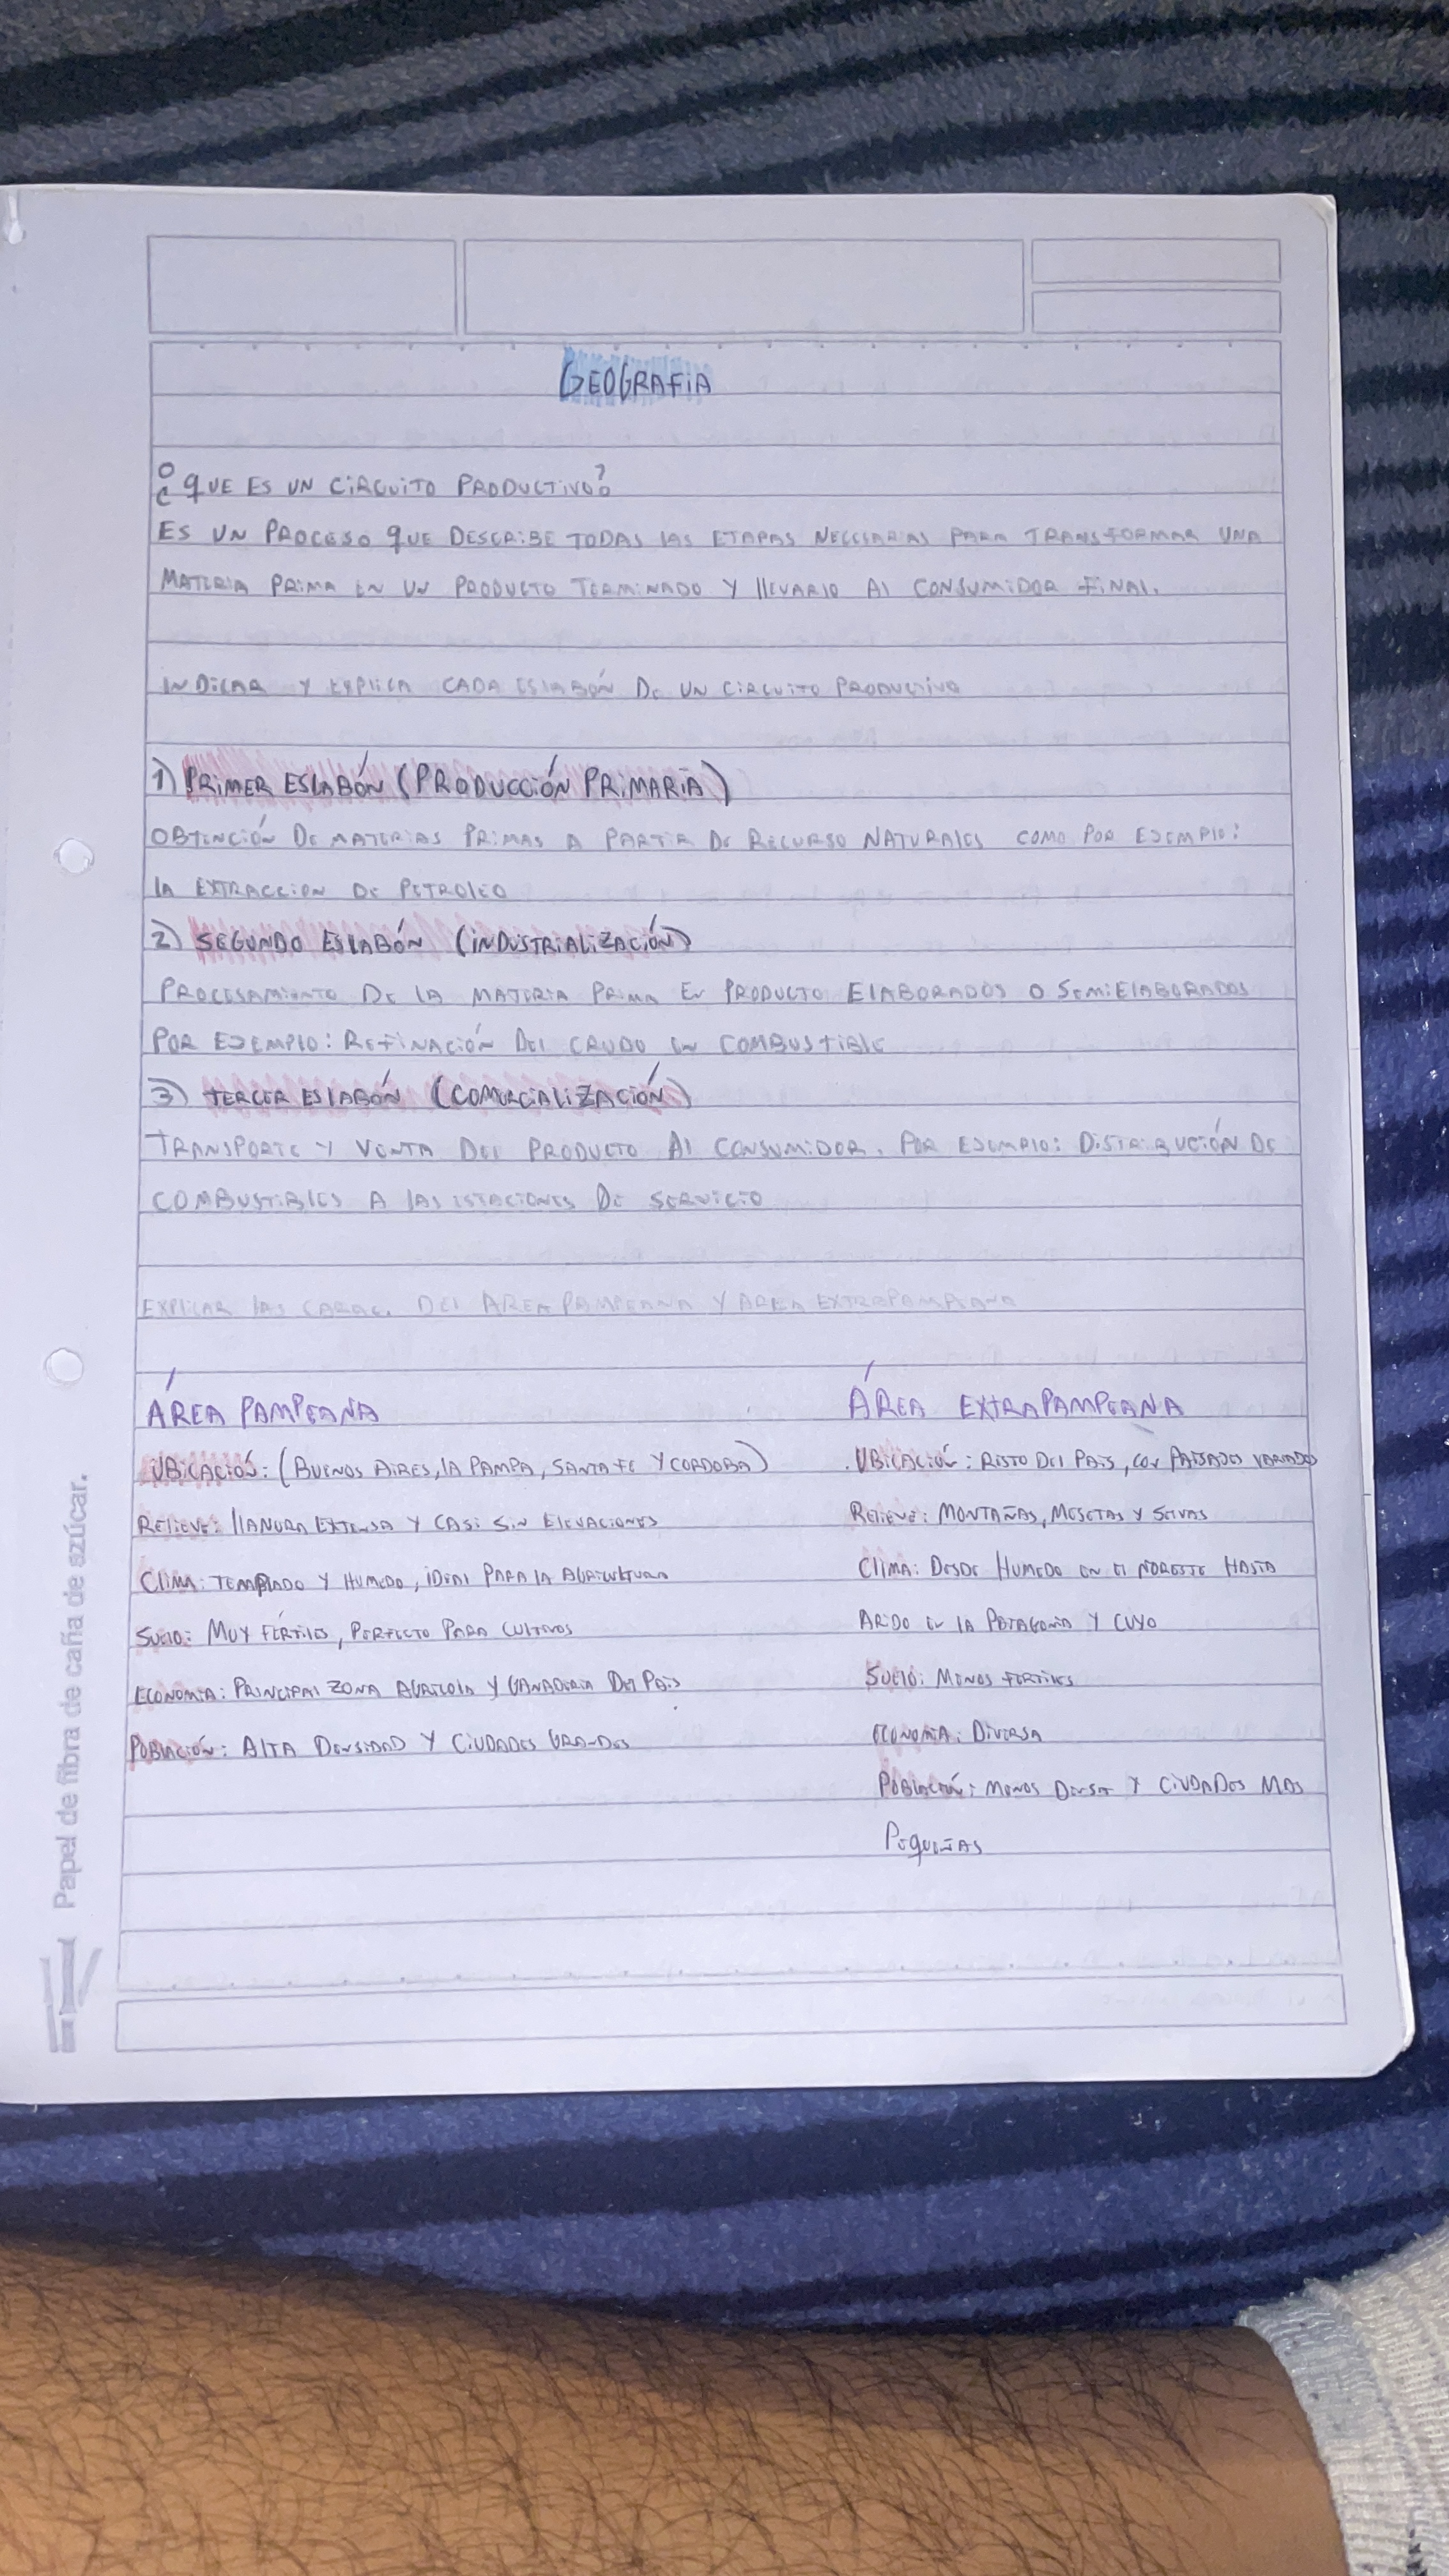 GEOGRAFIA
¿QUE ES UN CIRCUITO PRODUCTIVO?
ES UN PROCESO QUE DESCRIBE TODAS LAS ETAPAS NECESARIAS PARA TRANSFORMAR UNA
MATERIA PRIMA EN UN PRODUCTO TERMINADO Y LLEVARLO AL CONSUMIDOR FINAL.
INDICAR Y EXPLICA CADA ESLABÓN DE UN CIRCUITO PRODUCTIVO
1) PRIMER ESLABÓN (PRODUCCIÓN PRIMARIA)
OBTENCIÓN DE MATERIAS PRIMAS A PARTIR DE RECURSO NATURALES COMO POR EJEMPLO:
LA EXTRACCION DE PETROLEO
2) SEGUNDO ESLABÓN (INDUSTRIALIZACIÓN)
PROCESAMIENTO DE LA MATERIA PRIMA EN PRODUCTO ELABORADOS O SEMIELABORADOS
POR EJEMPLO: REFINACIÓN DEL CRUDO EN COMBUSTIBLE
3) TERCER ESLABÓN (COMERCIALIZACIÓN)
TRANSPORTE Y VENTA DEL PRODUCTO AL CONSUMIDOR. POR EJEMPLO: DISTRIBUCIÓN DE
COMBUSTIBLES A LAS ESTACIONES DE SERVICIO
EXPLICAR LAS CARAC. DEL AREA PAMPEANA Y AREA EXTRAPAMPEANA
ÁREA PAMPEANA
UBICACIÓN: (BUENOS AIRES, LA PAMPA, SANTA FE Y CORDOBA)
RELIEVE: LLANURA EXTENSA Y CASI SIN ELEVACIONES
CLIMA: TEMPLADO Y HUMEDO, IDEAL PARA LA AGRICULTURA
SUELO: MUY FÉRTILES, PERFECTO PARA CULTIVOS
ECONOMIA: PRINCIPAL ZONA AGRICOLA Y GANADERIA DEL PAIS
POBLACIÓN: ALTA DENSIDAD Y CIUDADES GRANDES
ÁREA EXTRAPAMPEANA
UBICACIÓN: RESTO DEL PAIS, CON PAISAJES VARIADOS
RELIEVE: MONTAÑAS, MESETAS Y SELVAS
CLIMA: DESDE HUMEDO EN EL NORESTE HASTA
ARIDO EN LA PATAGONIA Y CUYO
SUELO: MENOS FERTILES
ECONOMIA: DIVERSA
POBLACIÓN: MENOS DENSA Y CIUDADES MAS
PEQUEÑAS
Papel de fibra de caña de azúcar.